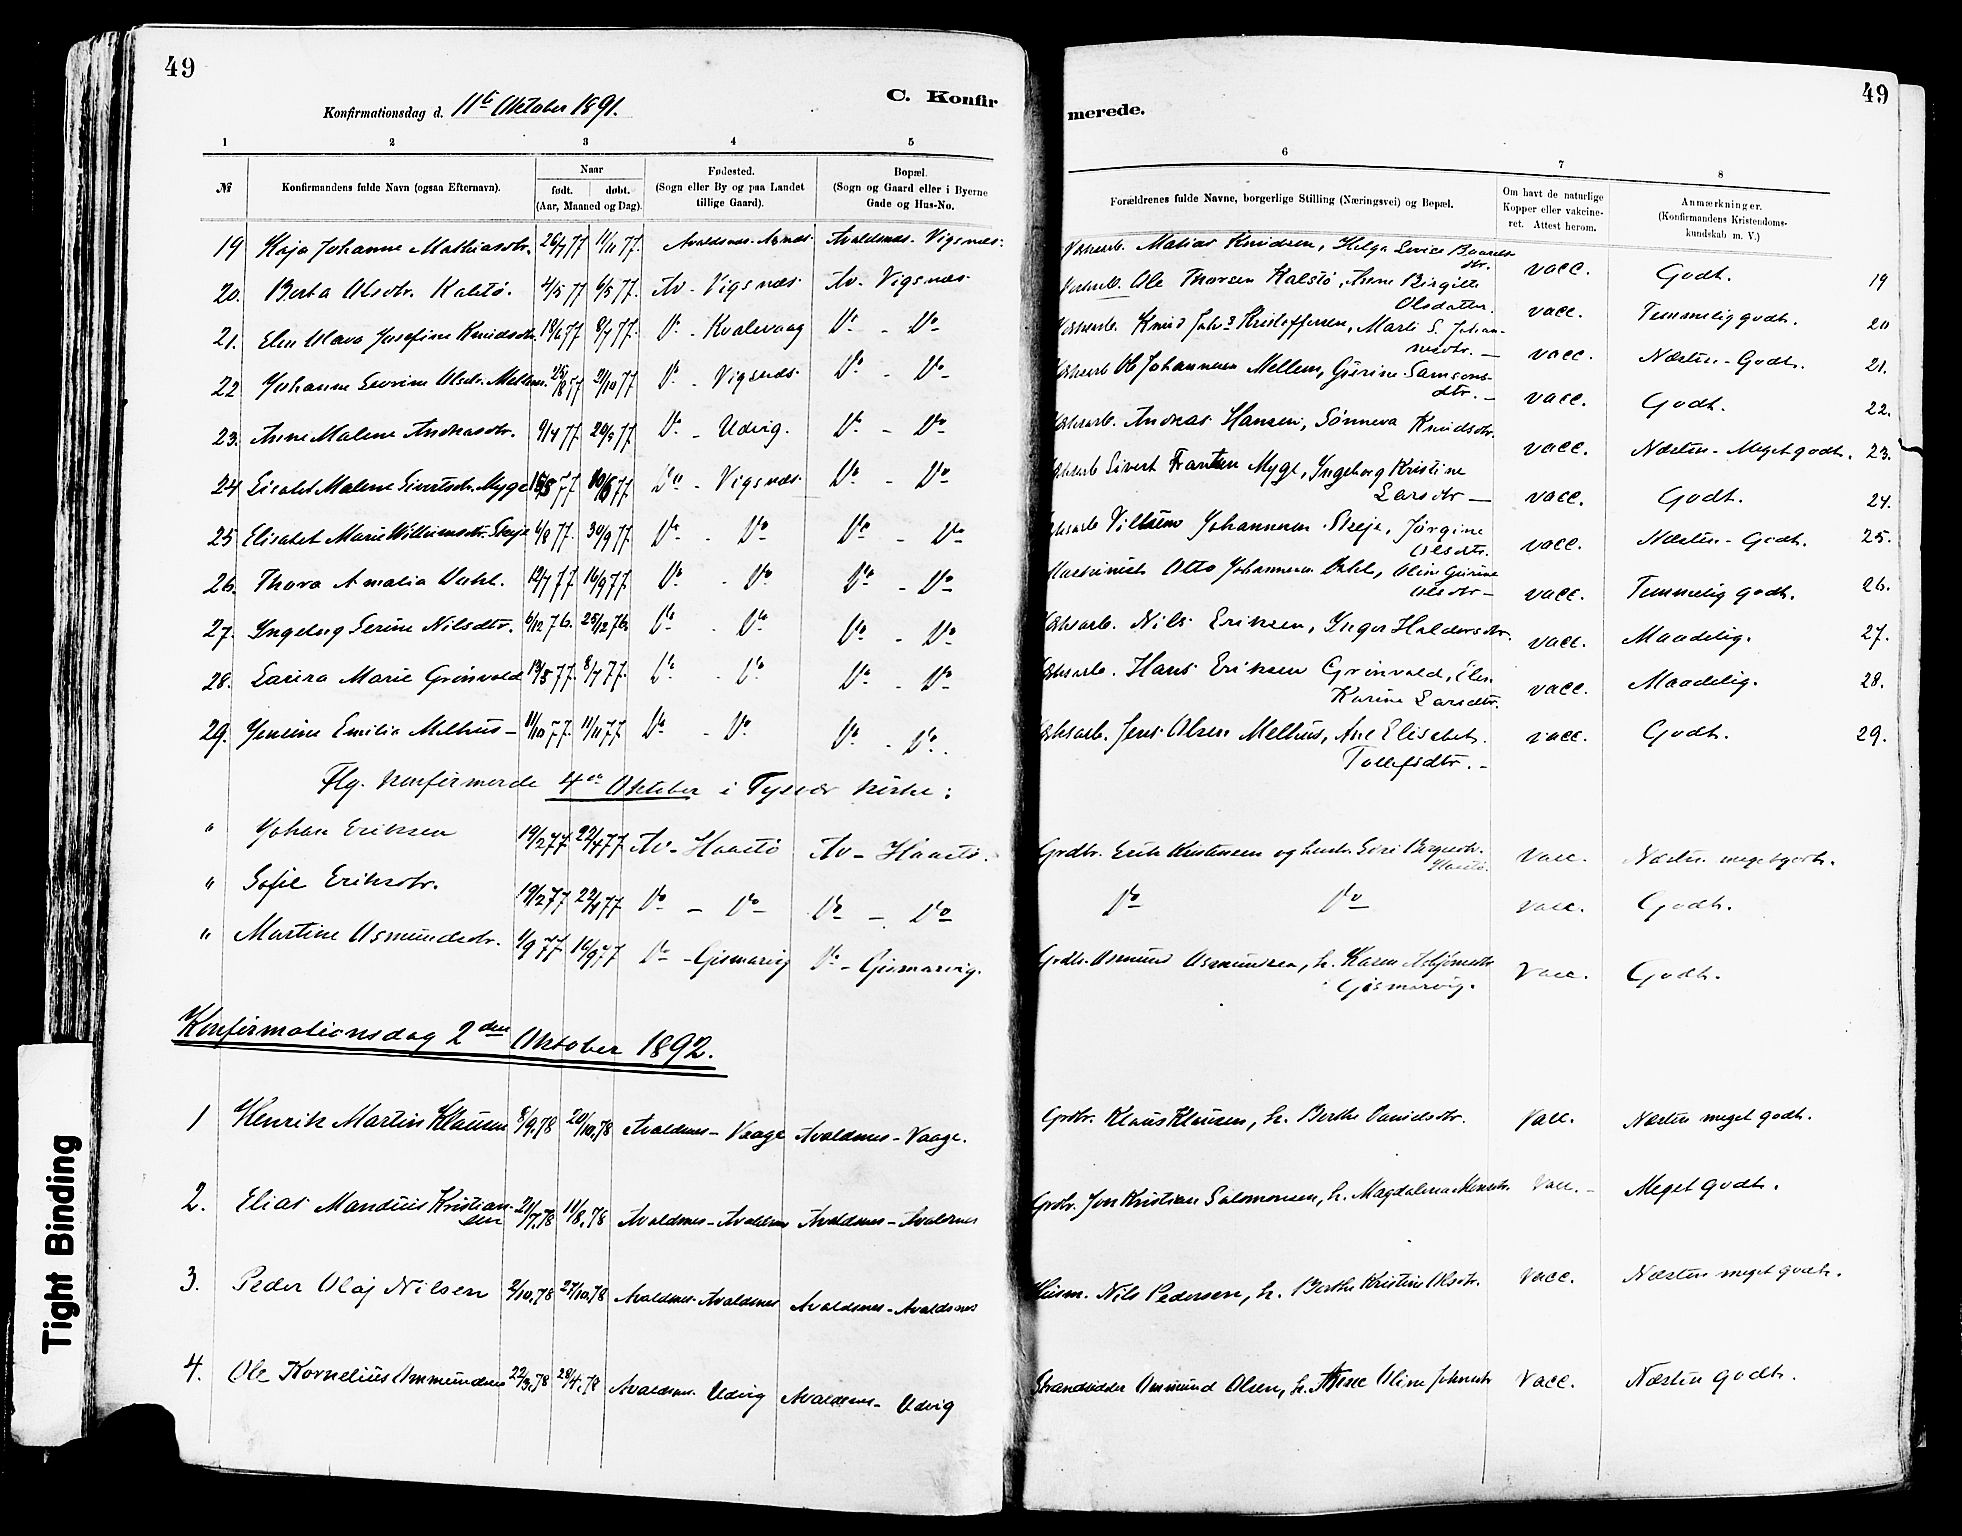 49
Konfirmationsdag d. 11te Oktober 1891.
C. Konfir
1 2 3 4 5
№
Konfirmandens fulde Navn (ogsaa Efternavn).
Naar
født. døbt.
(Aar, Maaned og Dag).
Fødested.
(Sogn eller By og paa Landet
tillige Gaard).
Bopæl.
(Sogn og Gaard eller i Byerne
Gade og Hus-No.
19 Kaja Johanne Mathiasdtr. 26/7 77 11/11 77. Avaldsnes. Avaldsnes. Vigsnes.
20. Berta Olsdtr. Kalstø. 4/5 77 6/5 77. Av. Vigsnæs. Av. Vigsnæs
21. Elen Olava Josefine Knudsdtr. 18/6 77 8/7 77. Do - Kvalevaag Do - Do
22 Johanne Severine Olsdtr. Mellem. 21/10 77 Do - Vigsnæs. Do - Do
23. Anne Malene Andreasdtr. 9/7 77. 20/9 77. Do - Udvig. Do - Do
24 Lisabet Malene Sivertsdtr. Myge 77. 77. Do - Vigsnæs. Do - Do
25 Elisabet Marie Wilhelmsdtr. Skeje 6/8 77. 30/9 77. Do - Do Do - Do
26. Thora Amalia Dahl. 12/7 77 16/9 77. Do - Do Do - Do
27. Ingeborg Serine Nilsdtr. 6/12 76. 25/12 76. Do - Do Do - Do
28. Lavina Marie Grønvold 13/5 77. 8/7 77. Do - Do Do - Do
29. Jensine Emilie Melhus - 11/10 77. 11/11 77. Do - Do Do - Do.
Flg. konfirmerede 4de Oktober i Tysvær kirke:
" Johan Eriksen 19/2 77 22/4 77 Av - Haastø Av - Haastø.
" Sofie Eriksdtr. 19/2 77 22/4 77 Do - Do Do - Do
" Martine Osmundsdtr. 1/9 77 16/9 77 Do - Gismarvig Do - Gismarvig.
Konfirmationsdag 2den Oktober 1892.
1 Henrik Martin Klausen 8/9.78 20/10.78 Avaldsnes - Vaage Avaldsnes - Vaage.
2. Elias Mandius Kristian-
sen 21/7.78 11/8.78 Avaldsnes - Avaldsnes Avaldsnes - Avaldsnes
3. Peder Olaj Nilsen 2/10.78 27/10.78 Avaldsnes - Avaldsnes Avaldsnes - Avaldsnes
4. Ole Kornelius Ommundsen 22/3.78 28/4.78 Avaldsnes. Udvig Avaldsnes - Udvig
49
merede.
6 7 8
Forældrenes fulde Navne, borgerlige Stilling (Næringsvei) og Bopæl.
Om havt de naturlige
Kopper eller vakcine-
ret. Attest herom.
Anmærkninger.
(Konfirmandens Kristendoms-
kundskab m. V.)
Matias Knudsen, Helga Serine Baards-
dtr. vacc. Godt. 19
Ole Thorsen Kalstø, Anne Birgitte
Olsdatter. vacc. Temmelig godt. 20
Knud Johs Kristoffersen, Marti S. Johan-
nesdtr. - vacc. Næsten - Godt. 21.
Ole Johannesen Mellem, Gurine Samsons-
dtr. - vacc. Godt. 22.
Andreas Hansen, Sønneva Knudsdtr. vacc. Næsten - Meget godt. 23.
Sivert Frantsen Myge, Ingeborg Kristine
Larsdtr - vacc. Godt. 24.
Vilhelm Johannesen Skeje, Jørgine
Olsdtr. vacc. Næsten - Godt. 25.
Maskinist Otto Johannesen Dahl, Olin Gurine
Olsdtr - vacc. Temmelig godt. 26.
Nils Eriksen, Inger Haldorsdtr. vacc. Maadelig. 27.
Hans Eriksen Grønvold, Elen
Karine Larsdtr. vacc. Maadelig. 28.
Jens Olsen Melhus, Ane Elisabet
Tollefsdtr. - vacc. Godt. 29.
Grdbr. Erik Kristensen og hustr. Siri
Haastø. Vacc. Næsten meget godt.
Do Do vacc. Godt.
Grdbr. Osmund Osmundsen, h. Karen Asbjørnsdtr
Gismarvig. Vacc. Godt.
Grdbr. Klaus Klausen, h. Berthe Danielsdtr. Vacc. Næsten meget godt.
Grdbr. Jon Kristian Salomonsen, h. Magdalena Vacc. - Meget godt.
Husm. Nils Pedersen, h. Berthe Kristine Olsdtr. Vacc. Næsten meget godt.
Strandsidder Ommund Olsen, h. Anne Oline Johnsdtr Vacc. Næsten godt.
Tight Binding